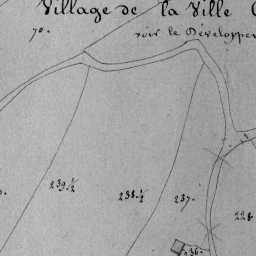 Village de la Ville
70.
voir le Développe
239.½
238.½
237.
228
236.